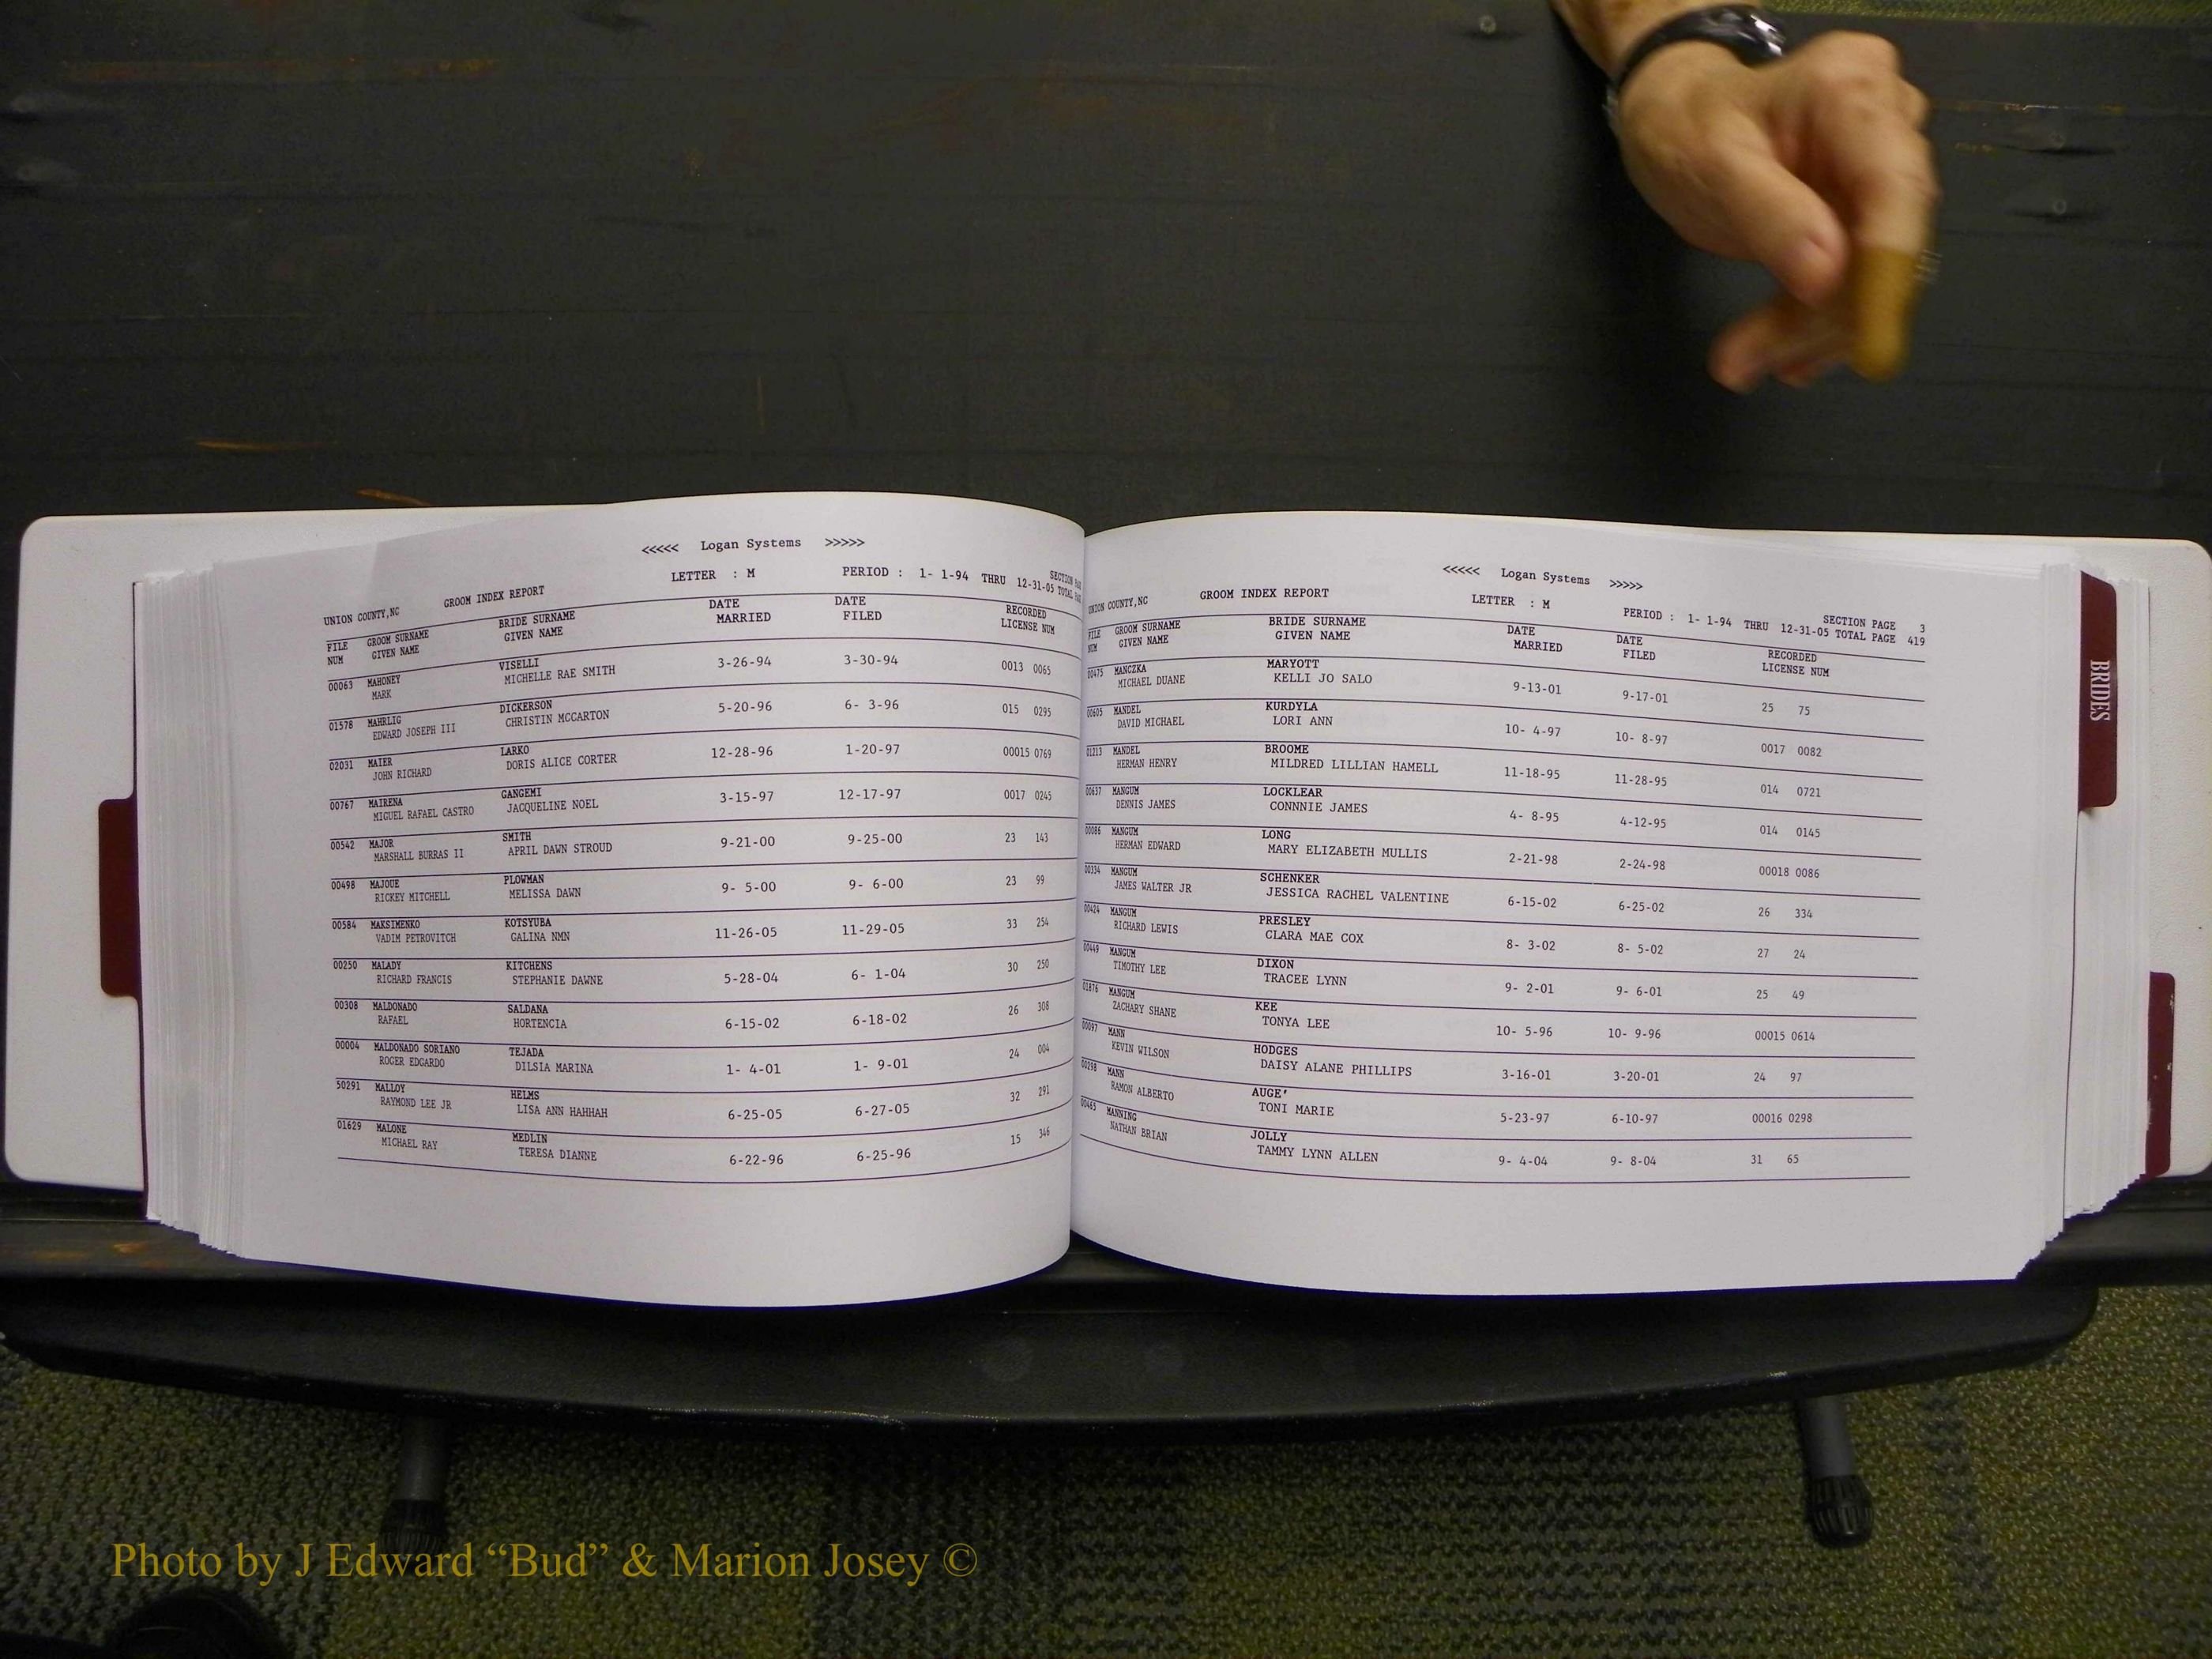 <<<<< Logan Systems >>>>>
UNION COUNTY,NC GROOM INDEX REPORT LETTER : M PERIOD : 1- 1-94 THRU 12-31-05 SECTION
TOTAL
FILE GROOM SURNAME BRIDE SURNAME DATE DATE RECORDED
NUM GIVEN NAME GIVEN NAME MARRIED FILED LICENSE NUM
00063 MAHONEY VISELLI 3-26-94 3-30-94 0013 0065
MARK MICHELLE RAE SMITH
01578 MAHRLIG DICKERSON 5-20-96 6- 3-96 015 0295
EDWARD JOSEPH III CHRISTIN MCCARTON
02031 MAIER LARKO 12-28-96 1-20-97 00015 0769
JOHN RICHARD DORIS ALICE CORTER
00767 MAIRENA GANGEMI 3-15-97 12-17-97 0017 0245
MIGUEL RAFAEL CASTRO JACQUELINE NOEL
00542 MAJOR SMITH 9-21-00 9-25-00 23 143
MARSHALL BURRAS II APRIL DAWN STROUD
00498 MAJOUE PLOWMAN 9- 5-00 9- 6-00 23 99
RICKEY MITCHELL MELISSA DAWN
00584 MAKSIMENKO KOTSYUBA 11-26-05 11-29-05 33 254
VADIM PETROVITCH GALINA NMN
00250 MALADY KITCHENS 5-28-04 6- 1-04 30 250
RICHARD FRANCIS STEPHANIE DAWNE
00308 MALDONADO SALDANA 6-15-02 6-18-02 26 308
RAFAEL HORTENCIA
00004 MALDONADO SORIANO TEJADA 1- 4-01 1- 9-01 24 004
ROGER EDGARDO DILSIA MARINA
50291 MALLOY HELMS 6-25-05 6-27-05 32 291
RAYMOND LEE JR LISA ANN HAHHAH
01629 MALONE MEDLIN 6-22-96 6-25-96 15 346
MICHAEL RAY TERESA DIANNE
<<<<< Logan Systems >>>>>
UNION COUNTY,NC GROOM INDEX REPORT LETTER : M PERIOD : 1- 1-94 THRU 12-31-05 SECTION PAGE 3
TOTAL PAGE 419
FILE GROOM SURNAME BRIDE SURNAME DATE DATE RECORDED
NUM GIVEN NAME GIVEN NAME MARRIED FILED LICENSE NUM
00475 MANCZKA MARYOTT 9-13-01 9-17-01 25 75
MICHAEL DUANE KELLI JO SALO
00605 MANDEL KURDYLA 10- 4-97 10- 8-97 0017 0082
DAVID MICHAEL LORI ANN
01213 MANDEL BROOME 11-18-95 11-28-95 014 0721
HERMAN HENRY MILDRED LILLIAN HAMELL
00637 MANGUM LOCKLEAR 4- 8-95 4-12-95 014 0145
DENNIS JAMES CONNNIE JAMES
00086 MANGUM LONG 2-21-98 2-24-98 00018 0086
HERMAN EDWARD MARY ELIZABETH MULLIS
00334 MANGUM SCHENKER 6-15-02 6-25-02 26 334
JAMES WALTER JR JESSICA RACHEL VALENTINE
00424 MANGUM PRESLEY 8- 3-02 8- 5-02 27 24
RICHARD LEWIS CLARA MAE COX
00449 MANGUM DIXON 9- 2-01 9- 6-01 25 49
TIMOTHY LEE TRACEE LYNN
01876 MANGUM KEE 10- 5-96 10- 9-96 00015 0614
ZACHARY SHANE TONYA LEE
00097 MANN HODGES 3-16-01 3-20-01 24 97
KEVIN WILSON DAISY ALANE PHILLIPS
00298 MANN AUGE' 5-23-97 6-10-97 00016 0298
RAMON ALBERTO TONI MARIE
00465 MANNING JOLLY 9- 4-04 9- 8-04 31 65
NATHAN BRIAN TAMMY LYNN ALLEN
BRIDES
Photo by J Edward “Bud” & Marion Josey ©